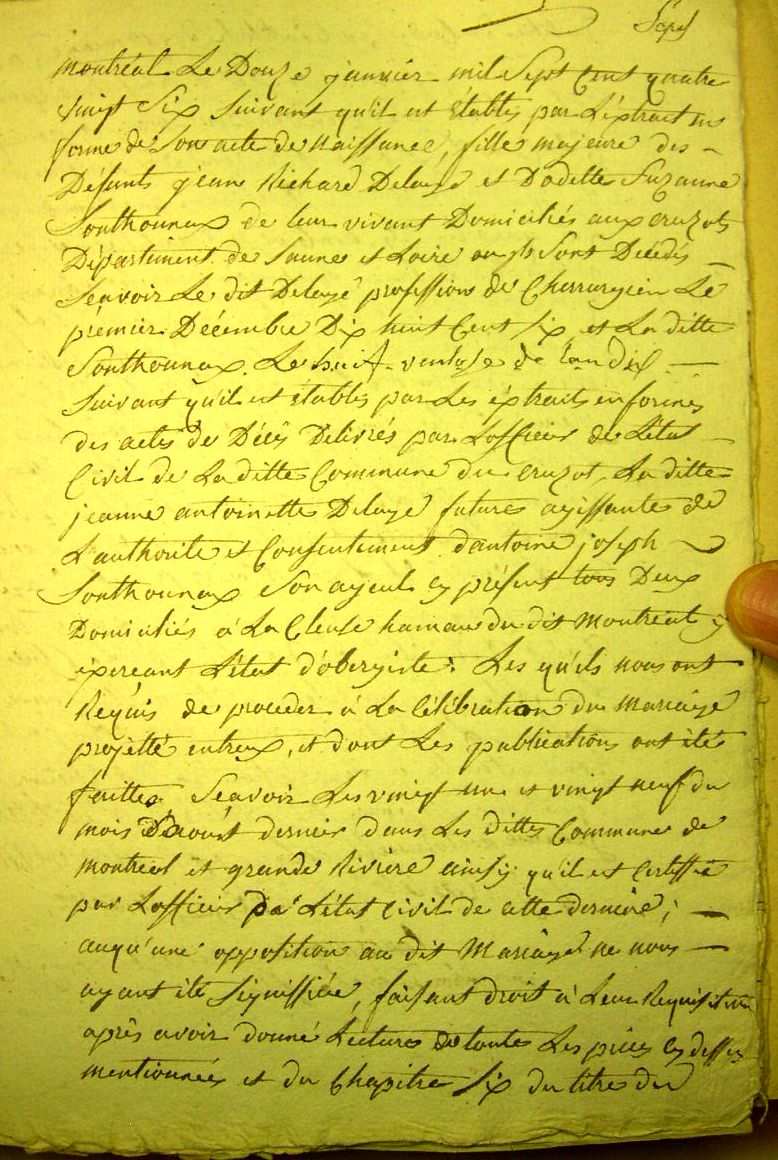 Sept
montréal Le Douze janvier mil Sept Cent quatre
vingt Six Suivant qu'il est établis par L'éxtrait en
forme de Son acte de naissance, fille majeure des
Défunts jean Richard Delayé et Dodette Suzanne
Southonnax de leur vivant Domiciliés aux cruzots
Département de Saunes et Loire ou ils Sont Décédés
Scavoir Le dit Delayé proffession de Cherrurgien Le
prémier Décembre Dix huit Cent Six et La ditte
Southonnax Le huit ventose de l'an dix
Suivant qu'il est établis par Les éxtraits en formes
des actes de Décès Délivrés par Lofficier de L'état
Civil de La ditte Commune du cruzot, La ditte
jeanne antoinette Delayé future agissante de
L'authorité et Consentement d'antoine joseph
Southonnax Son ayeul cy présent tous Deux
Domiciliés à La Cluse hamau du dit Montréal y
éxerceant L'état d'obergiste. Les quéls nous ont
Requis de proceder à La Célébration du Mariage
projetté entreux, et dont Les publications ont étés
faittes, Scavoir Les vingt un et vingt neuf du
mois D'aoust dernier dans Les dittes Commune de
Montréal et grande Rivière ainsy qu'il est Certiffié
par Lofficier De L'état Civil de cette dernière;
auqu'une opposition au dit Mariage ne nous
ayant été Signiffiée, faisant droit à Leur Requisition
après avoir donné Lecture de toutes Les pièces cy dessus
mentionnées et du Chapitre Six du titre du